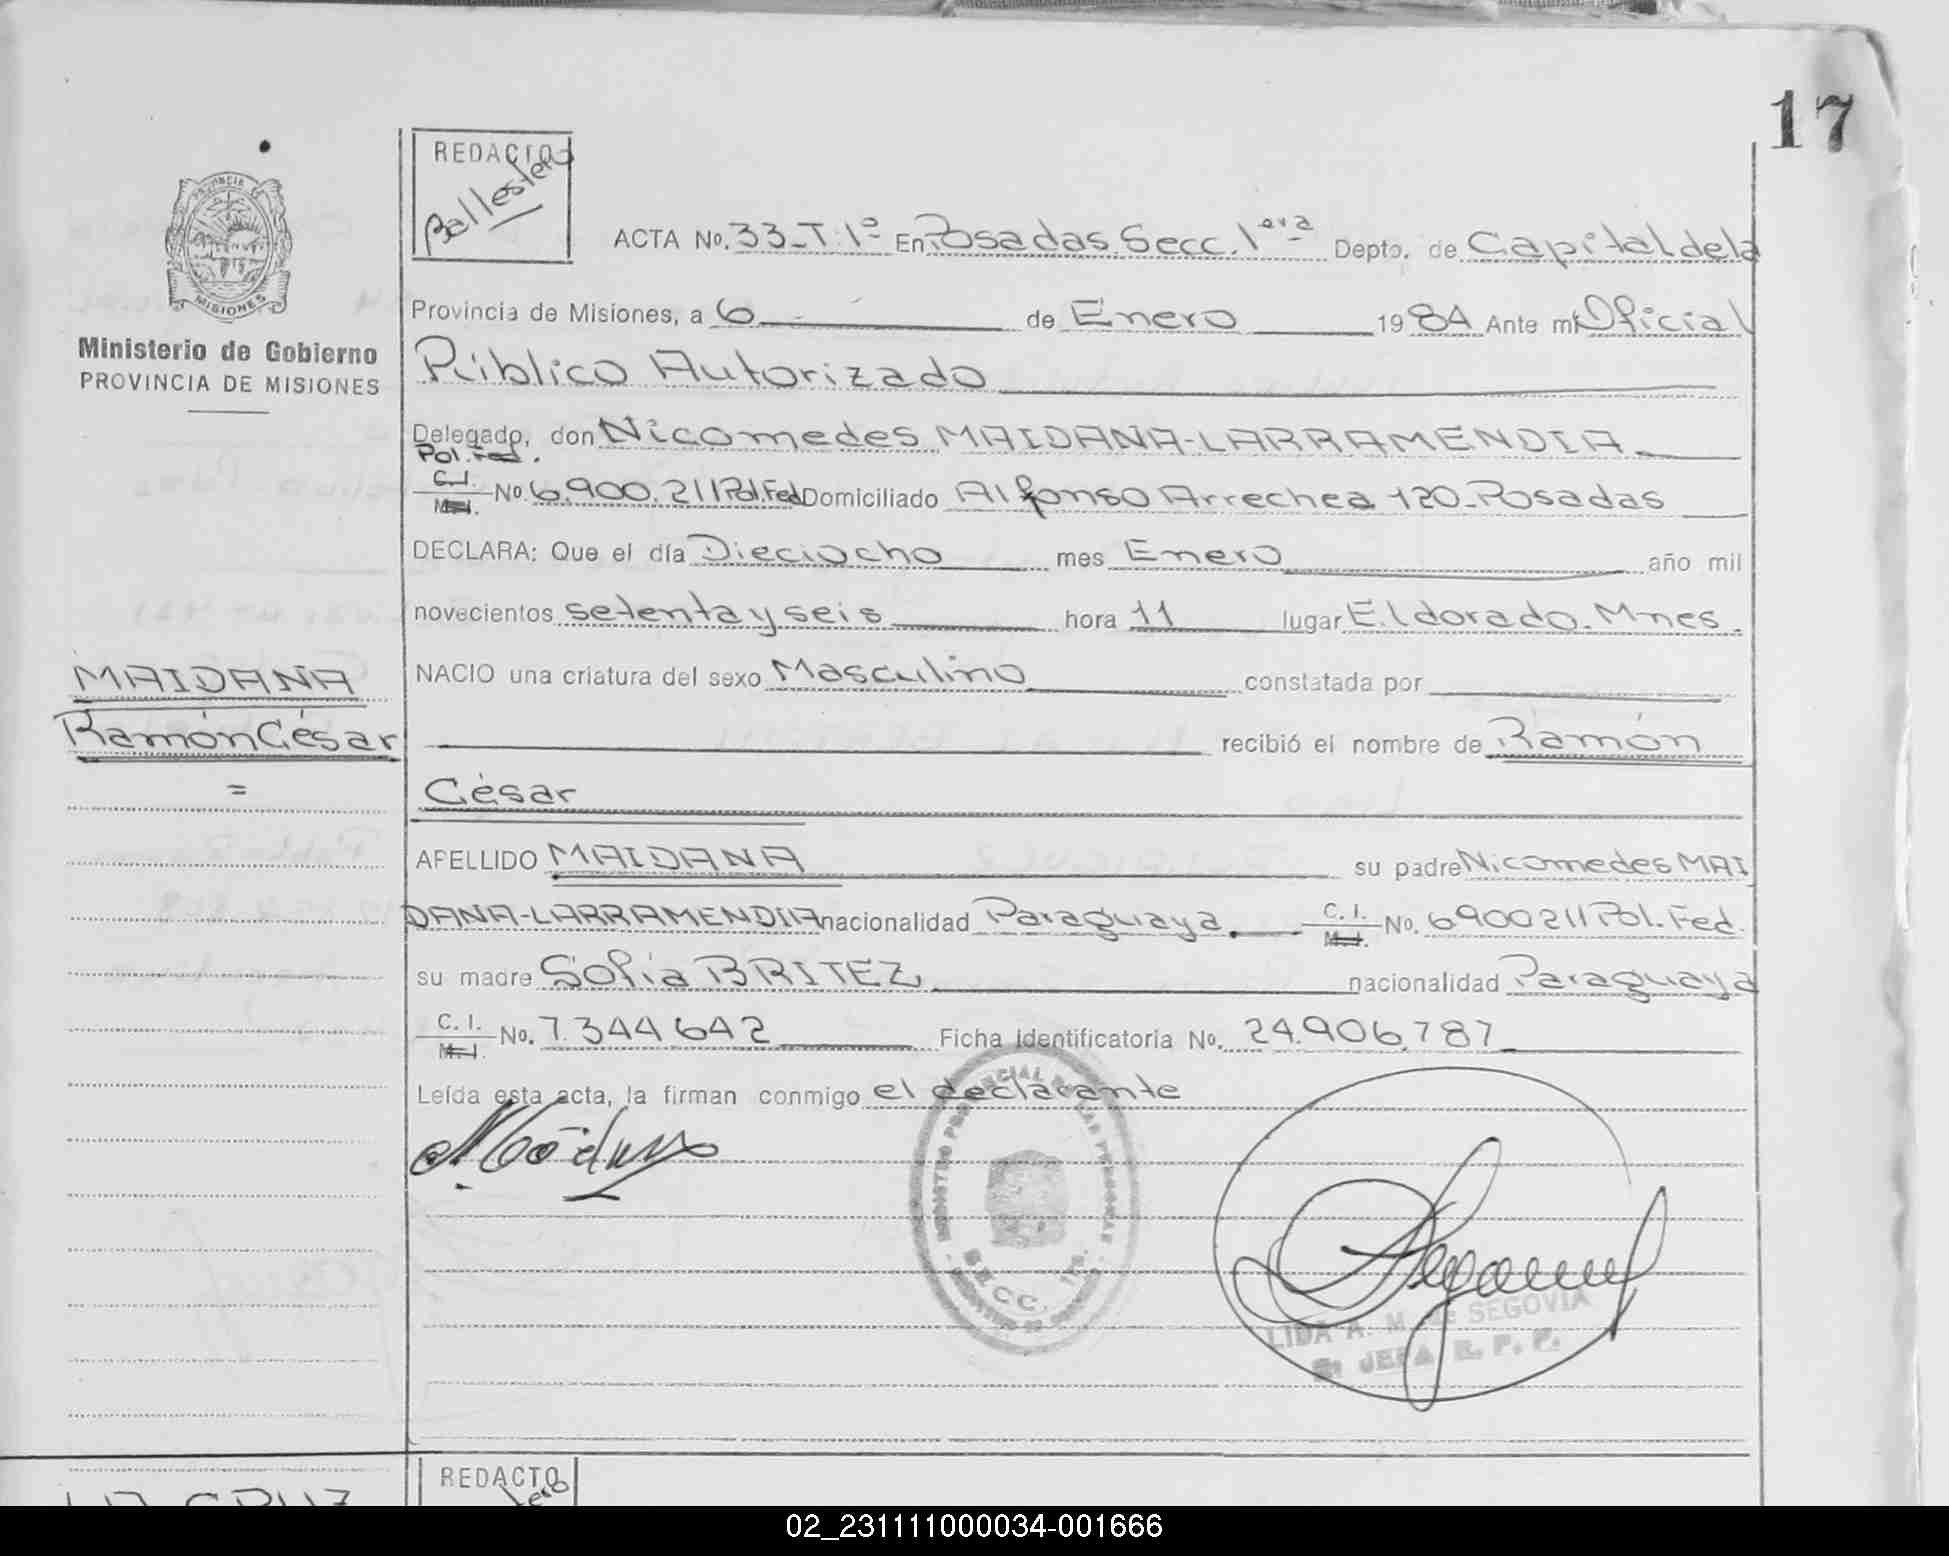 17
PROVINCIA
MISIONES
Ministerio de Gobierno
PROVINCIA DE MISIONES
REDACTO
Ballestero
ACTA No. 33-T.1º En Posadas. Secc. 1era Depto. de Capital de la
Provincia de Misiones, a 6 de Enero 1984 Ante mí Oficial
Público Autorizado
Delegado, don Nicomedes MAIDANA-LARRAMENDIA
Pol. Fed.
C.I. M.I. No. 6.900.211 Pol. Fed Domiciliado Alfonso Arrechea 120-Posadas
DECLARA: Que el día Dieciocho mes Enero año mil
novecientos setenta y seis hora 11 lugar Eldorado. Mnes.
NACIO una criatura del sexo Masculino constatada por
MAIDANA
Ramón César
=
recibió el nombre de Ramón
César
APELLIDO MAIDANA su padre Nicomedes MAI
DANA-LARRAMENDIA nacionalidad Paraguaya. C.I. M.I. No. 6900211 Pol. Fed.
su madre Sofia BRITEZ nacionalidad Paraguaya
C.I. M.I. No. 7.344642 Ficha identificatoria No. 24.906.787
Leída esta acta, la firman conmigo el declarante
REGISTRO PROVINCIAL DE LAS PERSONAS
SECC. 1ra.
LIDA A. M. de SEGOVIA
JEFA R. P. P.
REDACTO
02_231111000034-001666